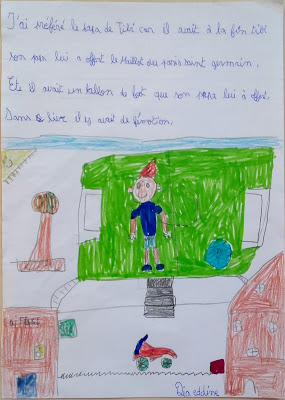 J'ai préféré le papa de Titi car il avait à la fin titi
son papa lui a offert le maillot du paris saint germain.
Et il avait un ballon de foot que son papa lui à offert.
Dans se livre il y avait de l'émotion.
Dja eddine